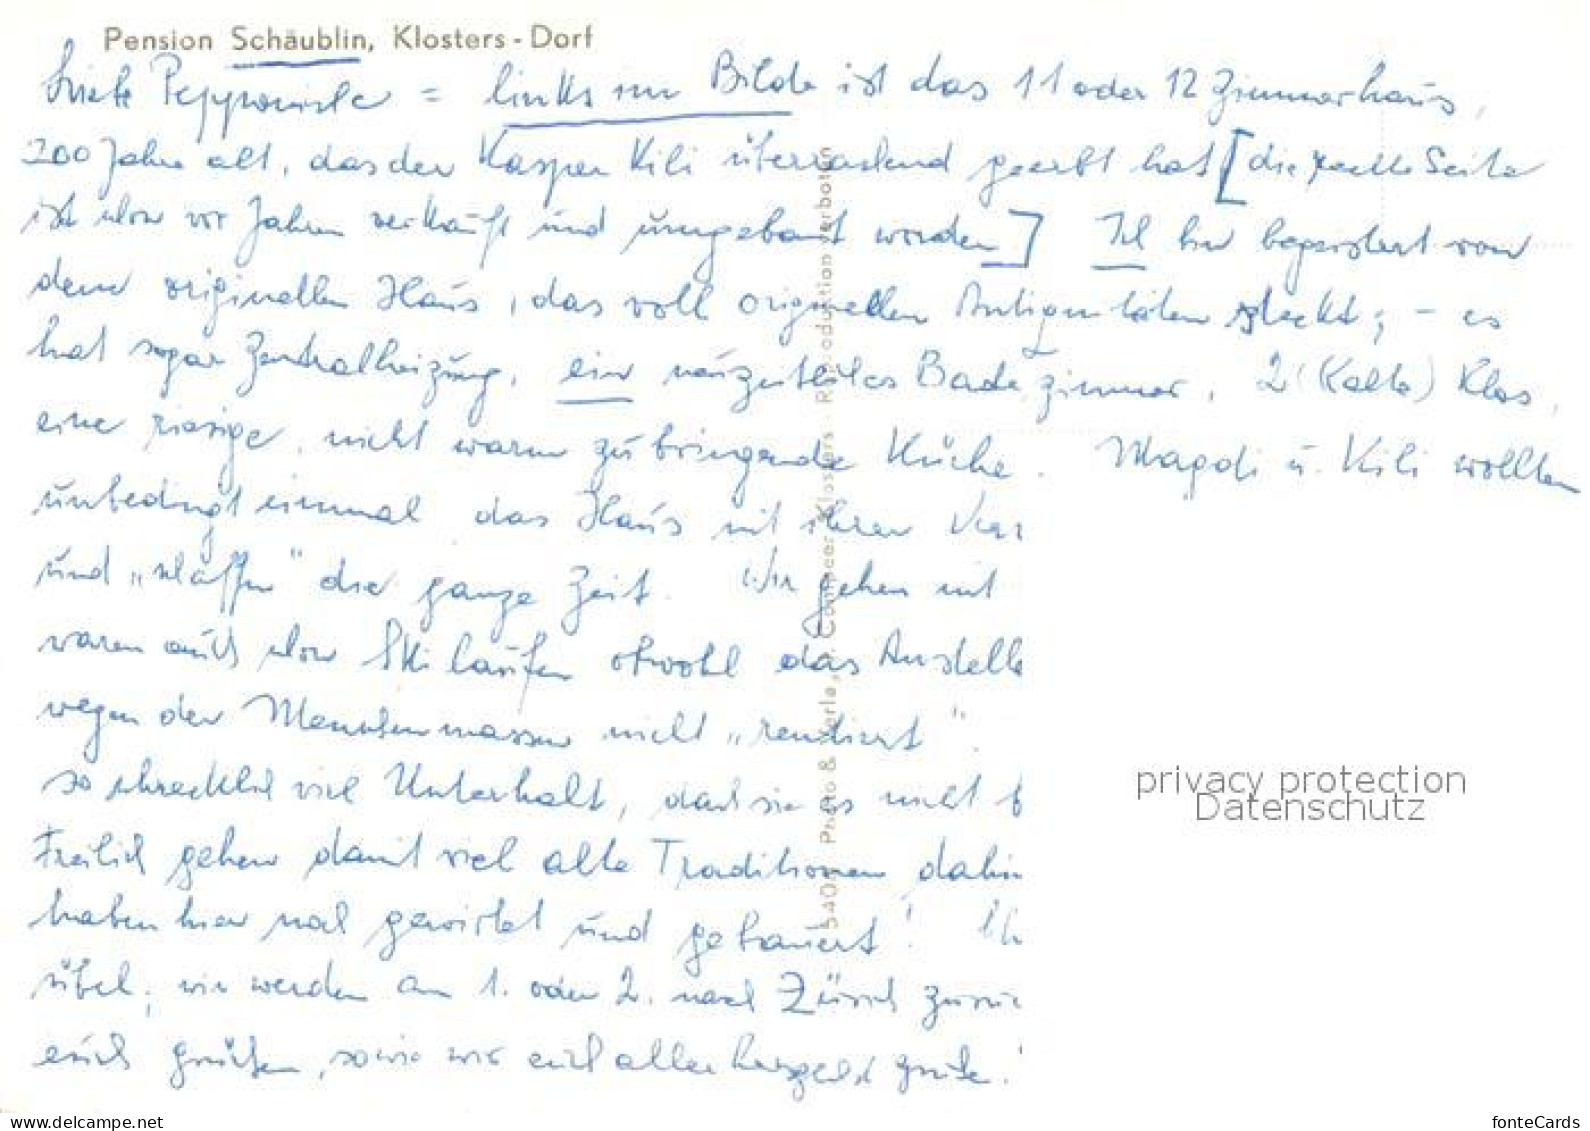 Pension Schäublin, Klosters - Dorf
= links im Bilde ist das 11 oder 12 Zimmerhaus,
200 Jahre alt, das der Kasper Kili überraschend geerbt hat [die Seite
ist schon vor Jahren verkauft und umgebaut worden] Ich bin begeistert von
dem originellen Haus, das voll originellen Antiquitäten steckt; - es
hat sogar Zentralheizung, ein Badezimmer, 2 (kalte) Klos,
eine riesige, nicht warm zu bringende Küche. Magdi u. Kili wollten
unbedingt einmal das Haus mit ihren
und „schaffen" die ganze Zeit. Wir gehen mit
waren auch schon Skilaufen obwohl das Anstelle
wegen der Menschenmassen nicht „rentiert".
so schrecklich viel Unterhalt, daß sie es nicht b
Freilich gehen damit viel alte Traditionen dahin
haben hier mal gewirtet und gebauert! Ih
übel; wir werden am 1. oder 2. nach Zürich
euch grüßen, sowie wir euch allen herzlich
5404 Photo & Verlag Compeer Klosters - Reproduktion verboten
privacy protection
Datenschutz
www.delcampe.net
fonteCards